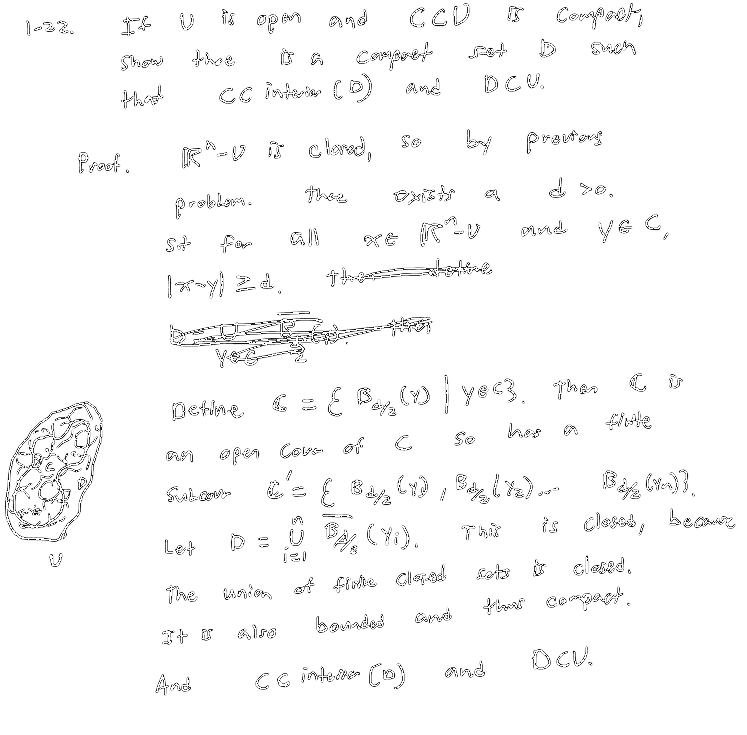 1-22. If U is open and C ⊂ U is compact,
show there is a compact set D such
that C ⊂ interior (D) and D ⊂ U.
Proof. ℝⁿ-U is closed, so by previous
problem. there exists a d > 0.
st for all x ∈ ℝⁿ-U and y ∈ C,
|x-y| ≥ d.
Define ℂ = { B_{d/2} (y) | y ∈ C}. Then ℂ is
an open cover of C so has a finite
subcover ℂ' = { B_{d/2} (y₁), B_{d/2} (y₂) ... B_{d/2} (yₙ)}.
Let D = ⋃_{i=1}^{n} \overline{B_{d/2}} (yᵢ). This is closed, because
The union of finite closed sets is closed.
It is also bounded and thus compact.
And C ⊂ interior (D) and D ⊂ U.
U